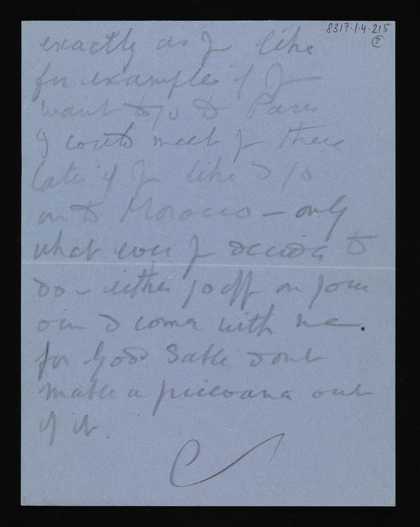 8317.1.4.215
2
exactly as you like
for example if you
want to go to Paris
I could meet you there
later if you like or go
on to Morocco – only
what ever you decide to
do – either go off on your
own or come with me.
for God's Sake dont
make a out
of it.
C